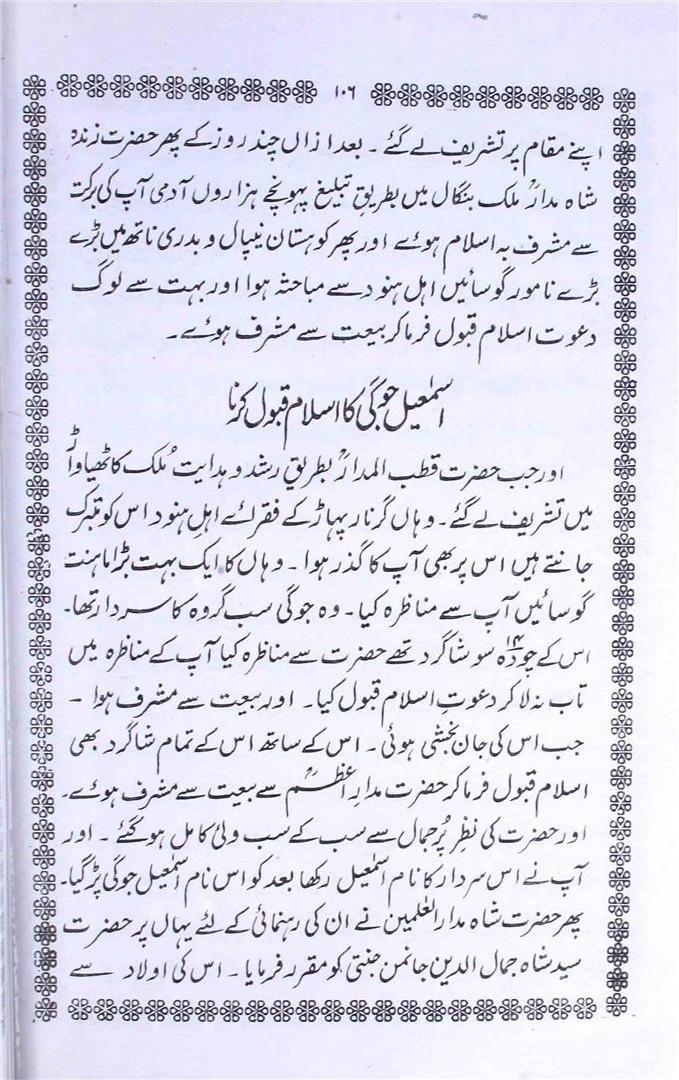 ۱۰۶
اپنے مقام پر تشریف لے گئے ۔ بعد ازاں چند روز کے پھر حضرت زندہ
شاہ مدارؒ ملک بنگال میں بطریقِ تبلیغ پہونچے ہزاروں آدمی آپ کی برکت
سے مشرف بہ اسلام ہوئے اور پھر کوہستان نیپال و بدری ناتھ میں بڑے
بڑے نامور گوسائیں اہل ہنود سے مباحثہ ہوا اور بہت سے لوگ
دعوت اسلام قبول فرما کر بیعت سے مشرف ہوئے ۔
اسمٰعیل جوگی کا اسلام قبول کرنا
اور جب حضرت قطب المدارؒ بطریق رشد و ہدایت مُلک کاٹھیاواڑ
میں تشریف لے گئے ۔ وہاں گرنار پہاڑ کے فقرائے اہل ہنود اس کو متبرک
جانتے ہیں اس پر بھی آپ کا گذر ہوا ۔ وہاں کا ایک بہت بڑا ماہنت
گوسائیں آپ سے مناظرہ کیا ۔ وہ جوگی سب گروہ کا سردار تھا ۔
اس کے چودہ ۱۴ سو شاگرد تھے حضرت سے مناظرہ کیا آپ کے مناظرہ میں
تاب نہ لا کر دعوتِ اسلام قبول کیا ۔ اور بیعت سے مشرف ہوا ۔
جب اس کی جان بخشی ہوئی ۔ اس کے ساتھ اس کے تمام شاگرد بھی
اسلام قبول فرما کر حضرت مدارِ اعظمؒ سے بیعت سے مشرف ہوے ۔
اور حضرت کی نظرِ پُر جمال سے سب کے سب ولیٔ کامل ہو گئے ۔ اور
آپ نے اس سردار کا نام اسمٰعیل رکھا بعد کو اس نام اسمٰعیل جوگی پڑ گیا ۔
پھر حضرت شاہ مدار العٰلمین نے ان کی رہنمائی کے لئے یہاں پر حضرت
سید شاہ جمال الدین جانمن جنتی کو مقرر فرمایا ۔ اس کی اولاد سے